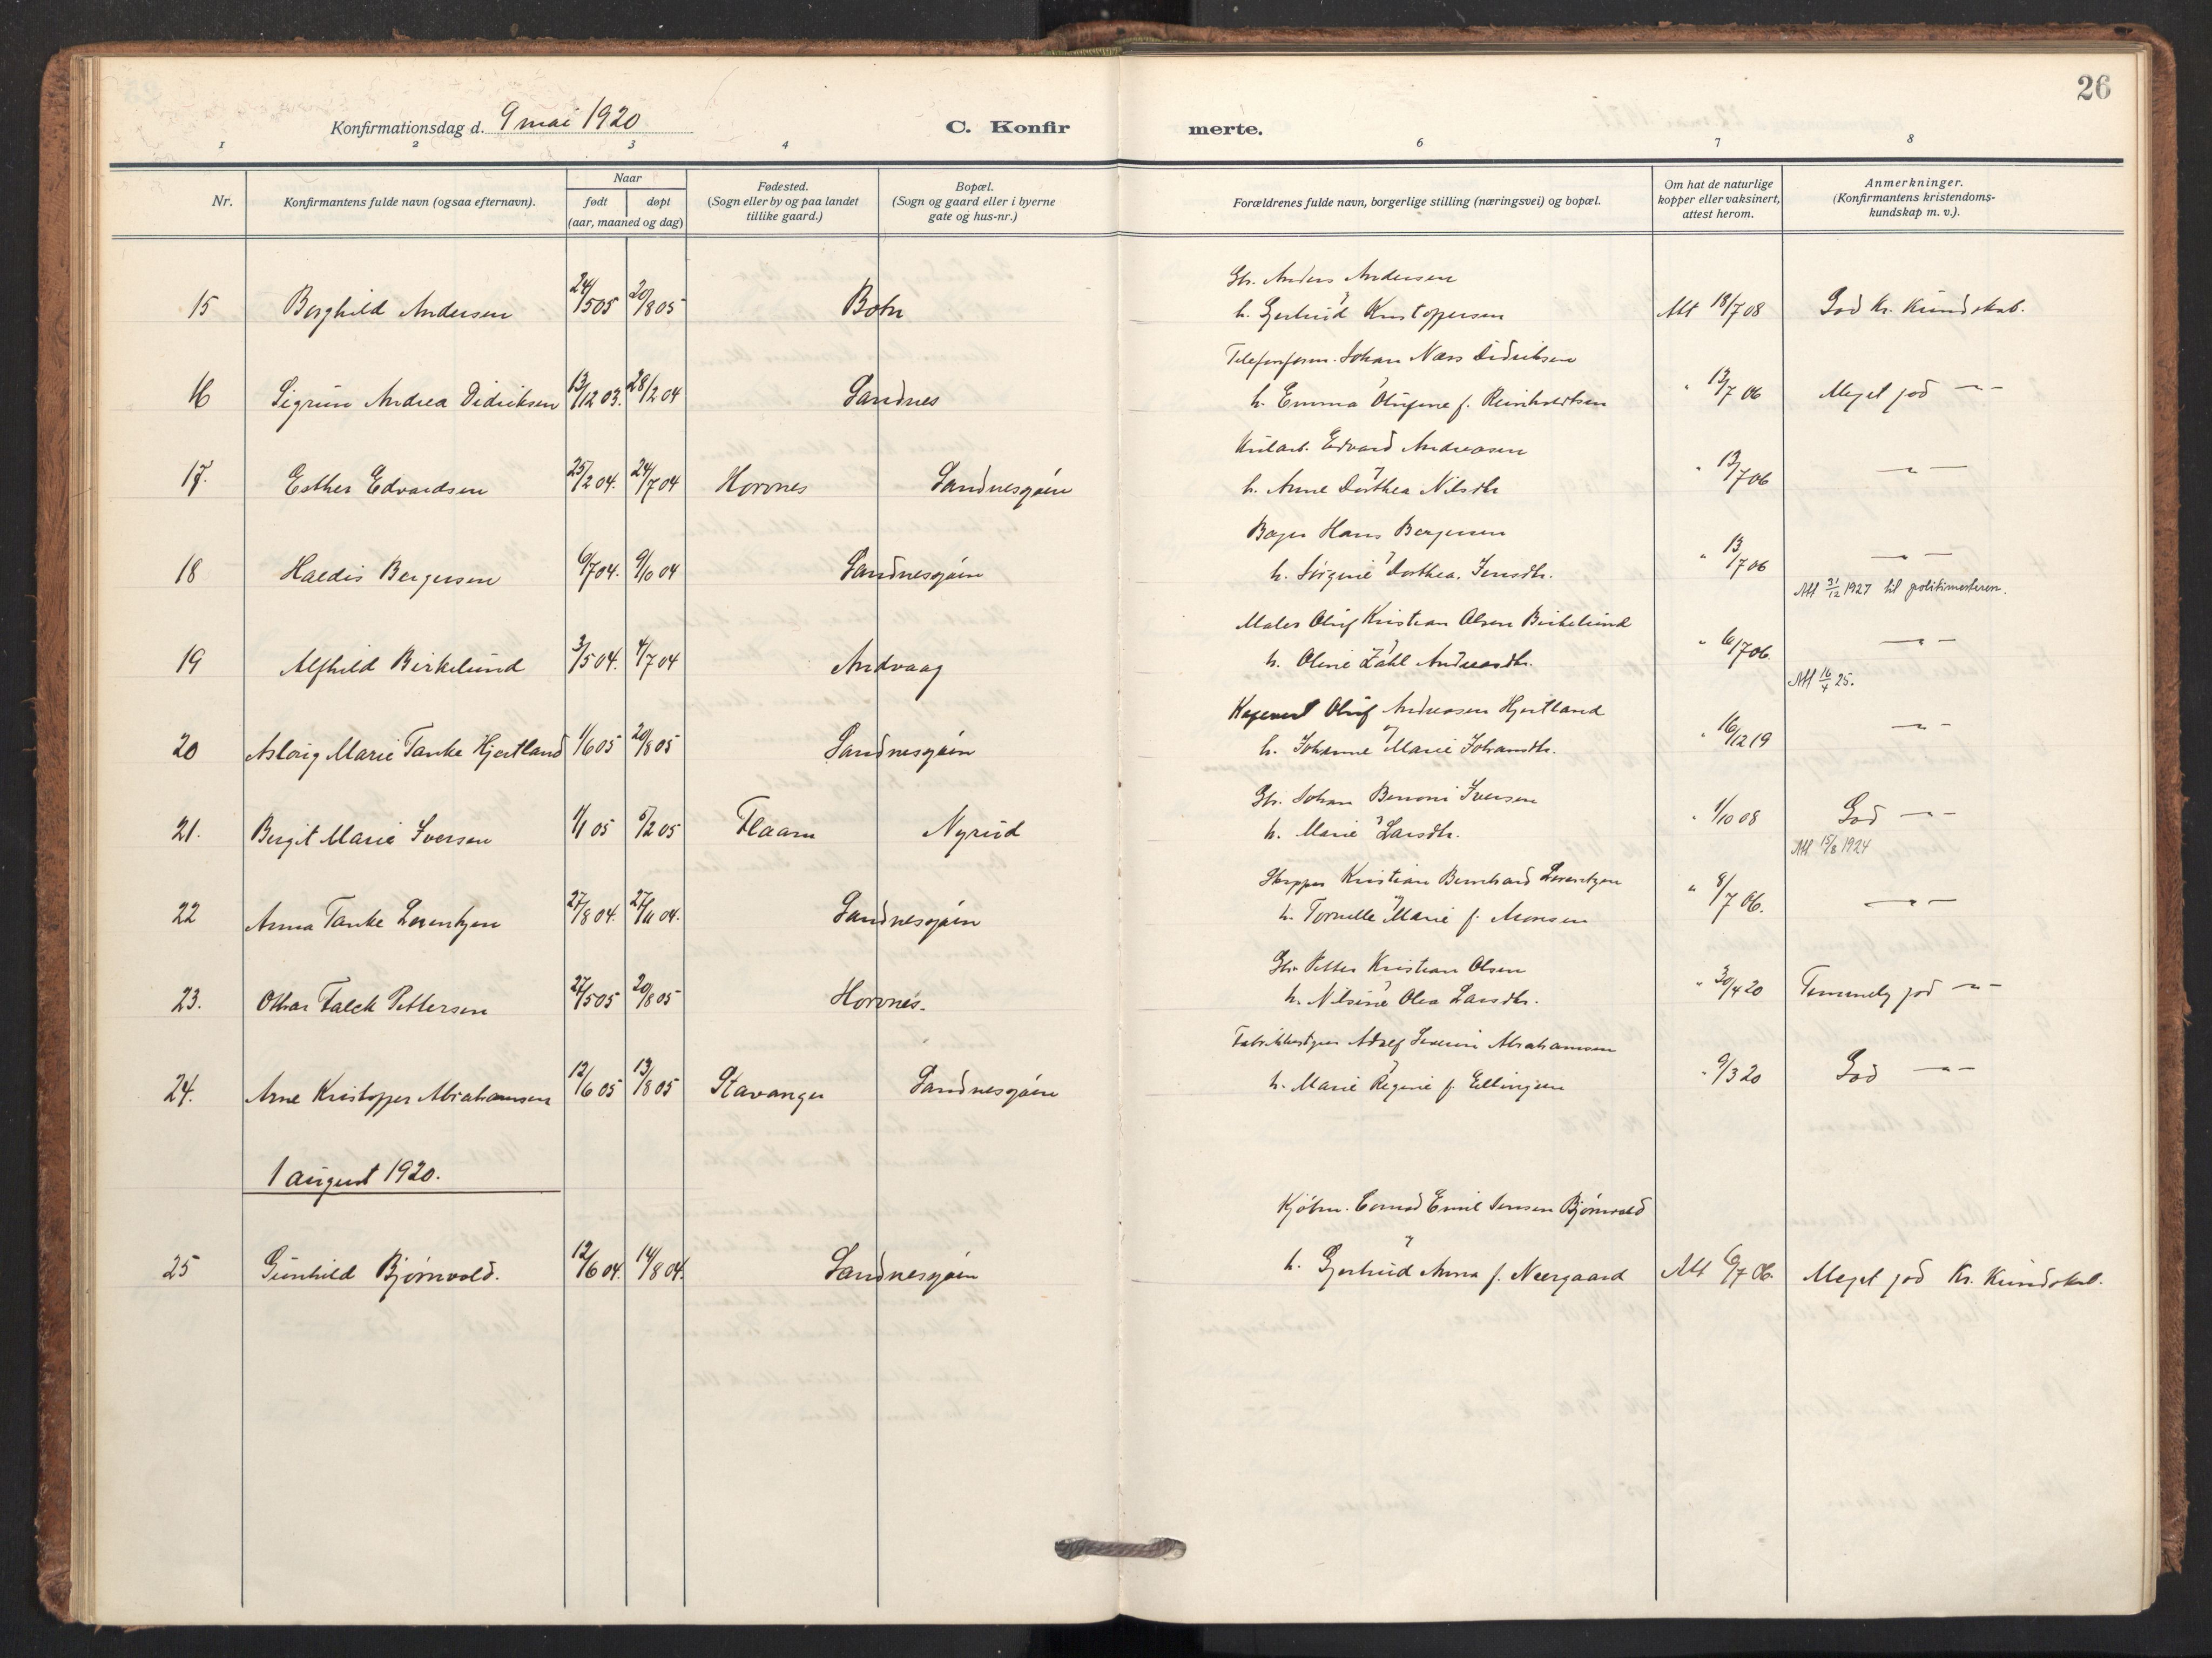 26
Konfirmationsdag d. 9 mai 1920
C. Konfirmerte.
1 2 3 4 6 7 8
Nr.
Konfirmantens fulde navn (ogsaa efternavn).
Naar
født døpt
(aar, maaned og dag)
Fødested.
(Sogn eller by og paa landet
tillike gaard.)
Bopæl.
(Sogn og gaard eller i byerne
gate og hus-nr.)
Forældrenes fulde navn, borgerlige stilling (næringsvei) og bopæl.
Om hat de naturlige
kopper eller vaksinert,
attest herom.
Anmerkninger.
(Konfirmantens kristendoms-
kundskap m. v.).
Gbr. Anders Andersen
15 Borghild Andersen 24/5 05 20/8 05 Botn h. Gjertrud Kristoffersen Att 18/7 08 God kr. kundskab.
Telefonform. Johan Nærs Didriksen
16 Sigrun Andrea Didriksen 13/12 03. 28/2 04 Sandnes h. Emma Olufine f. Reinholdtsen " 13/7 06 Meget god — " —
Edvard Andreasen
17. Esther Edvardsen 25/2 04. 24/7 04 Horvnes Sandnessjøen h. Anne Dorthea Nilsdtr " 13/7 06 — " —
Bager Hans Bergersen
18 Haldis Bergersen 6/7 04. 9/10 04 Sandnessjøen h. Jørgine Dorthea Jensdtr. " 13/7 06 — " —
Att 31/12 1927 til politimesteren.
Maler Oluf Kristian Olsen Birkelund
19 Alfhild Birkelund 3/5 04. 4/7 04 Andvaag h. Oline Zahl Andreasdtr. " 6/7 06. — " —
Att 16/4 25.
Oluf Andreasen Hjertland
20 Aslaug Marie Tanke Hjertland 1/6 05 20/8 05 Sandnessjøen h. Johanne Marie Johansdtr. " 16/12 19 — " —
Gbr. Johan Benoni Iversen
21. Birgit Marie Iversen 1/1 05 5/2 05 Flaam Nyrud h. Marie Larsdtr. " 1/10 08 God — " —
Att 15/8 1924
Skipper Kristian Bernhard Lorentzen
22 Anna Tanke Lorentzen 27/8 04. 27/11 04. Sandnessjøen h. Tornelle Marie f. Monsen " 8/7 06. — " —
Gbr. Petter Kristian Olsen
23. Othar Falck Pettersen 27/5 05 20/8 05 Horvnes. h. Nilsine Olea Larsdtr. " 30/4 20 Temmelig god — " —
Fabrikbestyrer Adolf Severin Abrahamsen
24. Arne Kristoffer Abrahamsen 12/6 05 13/8 05 Stavanger Sandnessjøen h. Marie Regine f. Ellingsen " 9/3 20 God — " —
1 august 1920.
Kjøbm. Conrad Emil Jensen Bjørnvold
25 Gunhild Bjørnvold. 12/6 04. 14/8 04. Sandnessjøen h. Gjertrud Anna f. Neergaard Att 6/7 06. Meget god kr. kundskab.